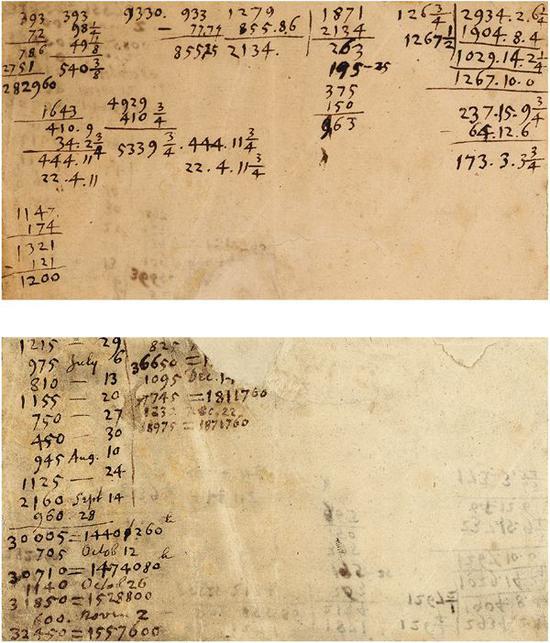 393 393 9330. 933 1279 1871 1263/4 2934.2.6 1/4
72 98 1/4 7774 855.8.6 2134 1267 1/2 1904.8.4
786 49 1/8 8552 2134. 263 1029.14.2 1/4
2751 540 3/8 195-25 1267.10.0
282960 375
1643 4929 3/4 150 237.15.9 3/4
410.9 410 3/4 963 64.12.6
34.2 3/4 5339 3/4 .444.11 3/4 173.3.3 3/4
444.11 3/4 22.4.11 3/4
22.4.11
1147.
174
1321
121
1200
1215 — 29 825
975 July 6 36650 =1
810 — 13 1095 Dec.
1155 — 20 7745 =1811760
750 — 27 Dec. 22.
450 — 30 38975 =1871760
945 Aug. 10
1125 — 24
2160 Sept 14
960 28
30005=1440260
705 Octob 12
30710=1474080
1140 October 26
31850=1528800
600. Novem 2
32450=1557600